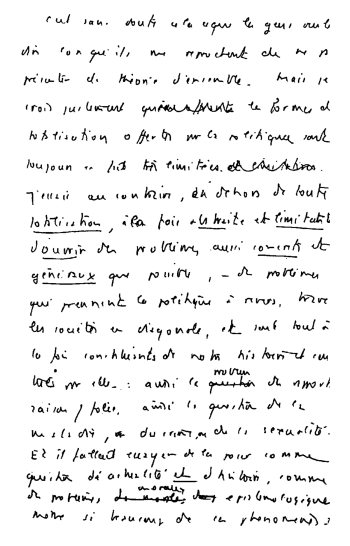 C'est sans doute à cela que les gens veulent
dire lorsqu'ils me reprochent de ne pas
présenter de théorie d'ensemble. Mais je
crois justement que les formes de
totalisation offertes par la politique sont
toujours en fait très limitées.
J'essaie au contraire, en dehors de toute
totalisation, à la fois abstraite et limitative
d'ouvrir des problèmes aussi concrets et
généraux que possible, – des problèmes
qui prennent la politique à revers, traversent
les sociétés en diagonale, et sont tout à
la fois constituants de notre histoire et constitués
par elle : ainsi le problème des rapports
raison / folie, ainsi la question de la
maladie, du crime ou de la sexualité.
Et il fallait essayer de les poser comme
question d'actualité et d'histoire, comme
des problèmes moraux, épistémologiques